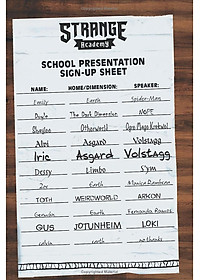 STRANGE
Academy
SCHOOL PRESENTATION
SIGN-UP SHEET
NAME: HOME/DIMENSION: SPEAKER:
Emily Earth Spider-Man
Doyle The Dark Dimension NOPE
Shaylee Otherworld
Alvi Asgard Volstagg
Iric Asgard Volstagg
Dessy Limbo S'ym
Zoe Earth Monica Rambeau
TOTH WEIRDWORLD ARKON
Germán Earth Fernanda Rodríguez
GUS JOTUNHEIM LOKI
calvin earth no thanks